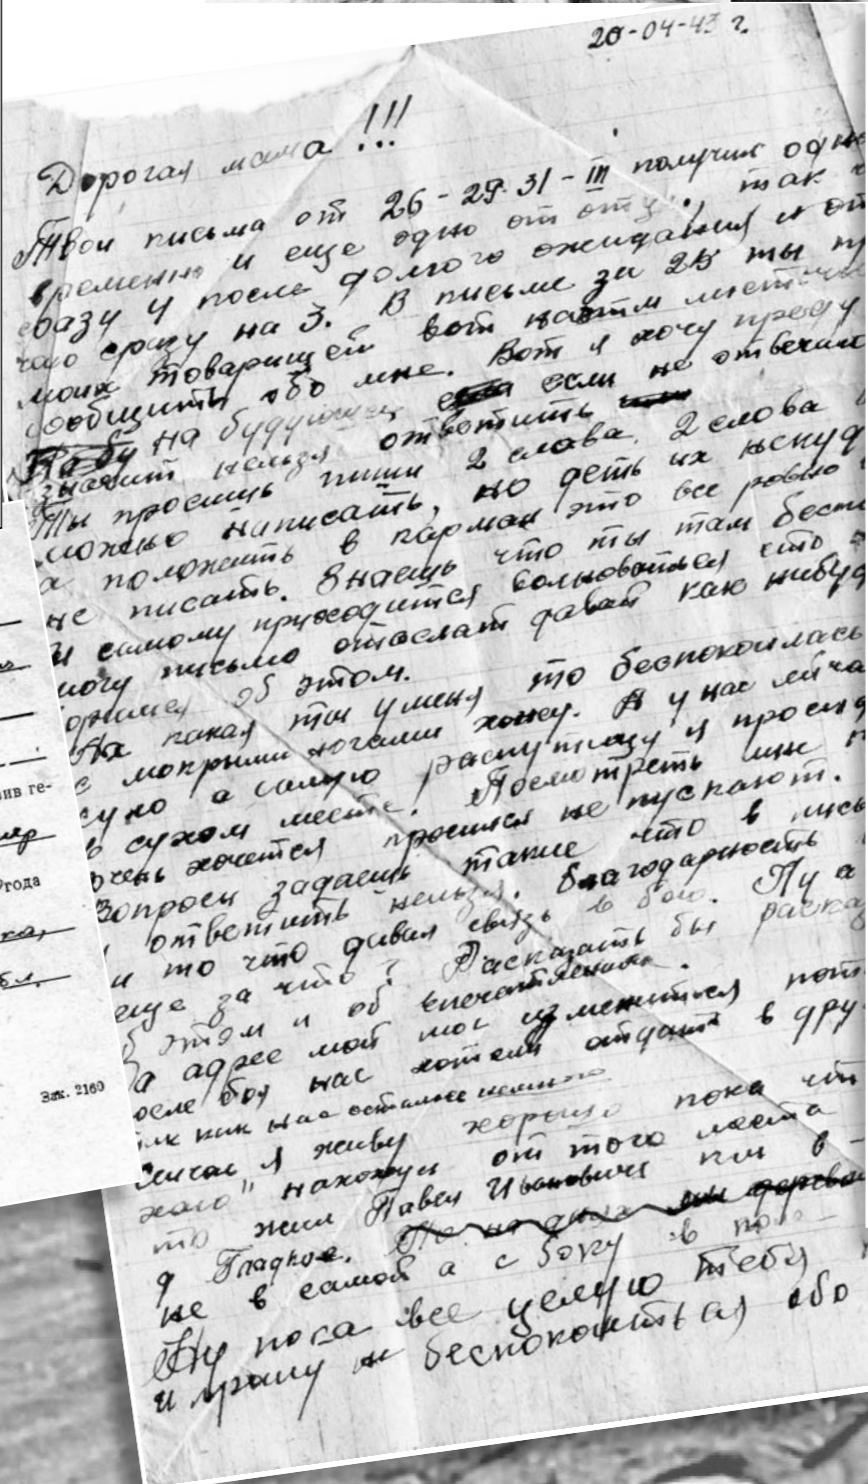 20-04-43 г.
Дорогая мама!!!
Твои письма от 26-29-31-III получил одно
временно и еще одно от отца, так ч
сразу и после долгого ожидания и от
чаю сразу на 3. В письме за 26 ты п
моих товарищей вот
сообщить обо мне. Вот я хочу преду
На бу на будующее если не отвечаю
значит нельзя ответить
Ты просишь пиши 2 слова. 2 слова
можно написать, но деть их некуд
а положить в карман это все ровно
не писать. Знаешь что ты там бесп
и самому приходится волноваться что н
могу письмо отослать давай как нибуд
оримся об этом.
На какая ты у меня то беспокоилась
с мокрыми ногами хожу. А у нас сейча
сухо а самую распутицу я просид
в сухом месте. Посмотреть мне
очень хочется просился не пускают.
Вопросы задаешь такие что в пись
ответить нельзя. Благодарность
и то что давал связь в бою. Ну а
еще за что? Расказать бы раска
б этом и об впечатлениях.
а адрес мой мог изменится пот
осле боя нас хотели отдать в дру
так как нас осталось немного
Сейчас я живу хорошо пока что
нахожусь от того места
то жил Павел Иванович км в -
д Гладкое.
не в самой а с боку в поле-
Ну пока все целую тебя
и прошу не беспокоиться обо
ив ге-
года
ка,
бл.
Зак. 2160